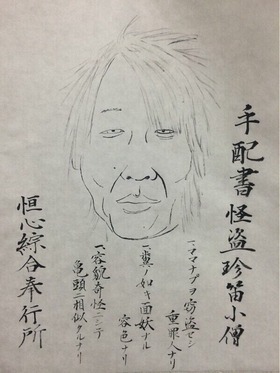 手配書 怪盗珍笛小僧
一、ママナプヲ窃盗セシ
重罪人ナリ
一、糞ノ如キ面妖ナル
容色ナリ
一、容貌奇怪ニシテ
亀頭ニ相似タルナリ
恒心綜合奉行所